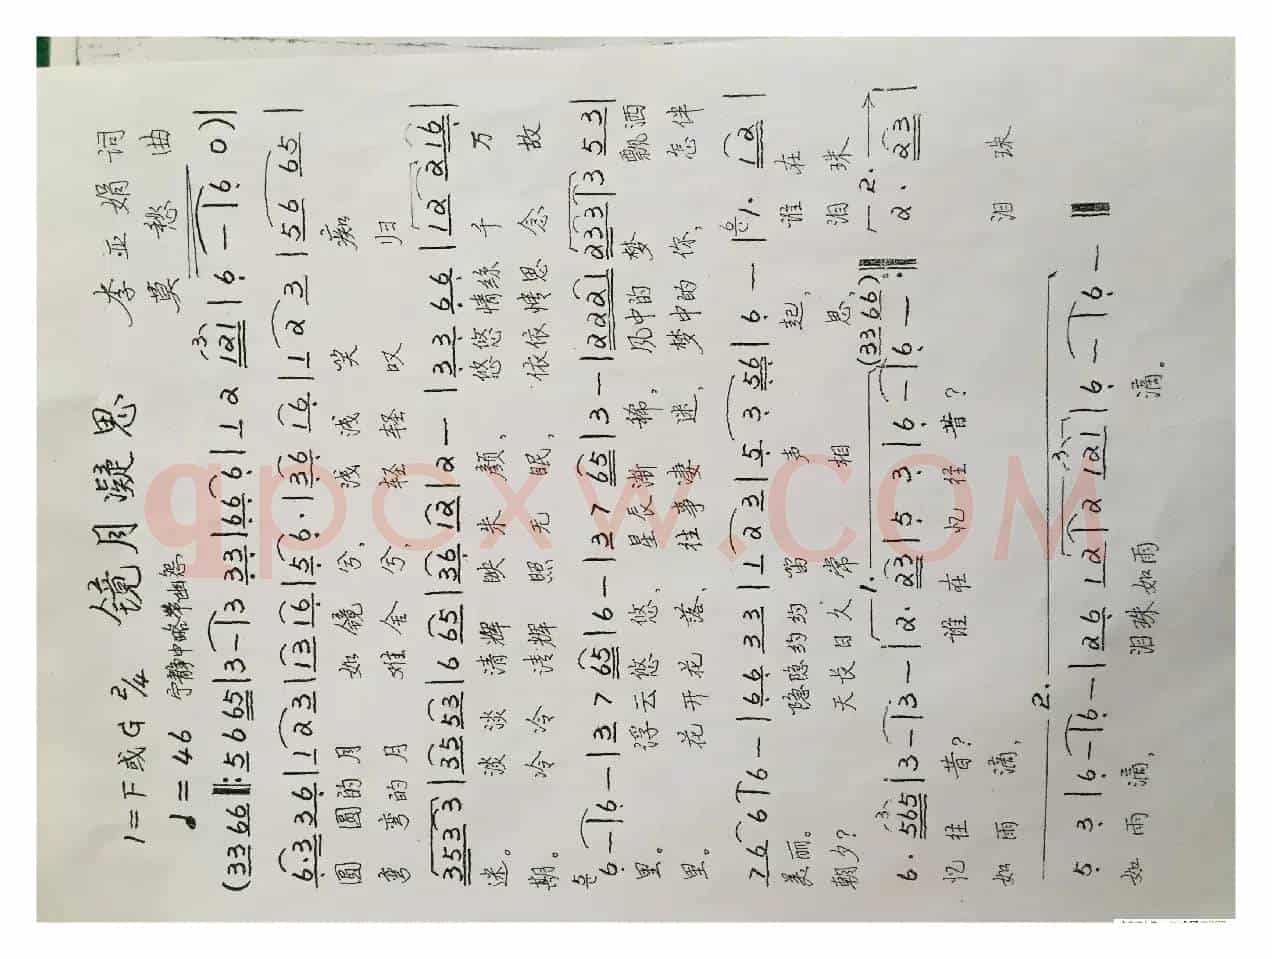 镜月凝思
1=F或G 2/4
♩=46 宁静中略带幽怨
李亚娟 词
莫愁 曲
(33 66 ‖: 5 6 65 | 3 — | 3 33 | 66 6 | 1 2 121 | 6 — | 6 0) |
6·3 36 | 1 23 | 13 16 | 56· | 36 16 | 1 23 | 56 65 |
圆圆的月 如镜兮, 浅浅笑 痴
弯弯的月 难全兮, 轻轻叹 归
353 3 | 35 53 | 6 65 | 36 12 | 2 — | 33 66 | 12 216 |
迷。 淡淡清辉映朱颜, 悠悠情丝 千万
期。 冷冷清辉照无眠, 依依情思 念故
6 — | 6 — | 37 65 | 6 — | 37 65 | 3 — | 222 233 | 3 53 |
里。 浮云悠悠, 星辰渐稀, 风中的梦 飘洒
里。 花开花落, 往事凄迷, 梦中的你, 怎伴
76 6 | 6 — | 66 33 | 1 23 | 5 3 56 | 6 — | % 12 |
美丽。 隐隐约约 笛声起, 谁在
朝夕? 天长日久 常相思, 泪珠
6· 565 | 3 — | 3 — | 2· 23 | 5 3 | 6 — | 6 — (33 66) :‖ 2· 23 |
忆往昔? 谁在忆往昔?
如雨滴, 泪珠
5 3 | 6 — | 6 — | 26 12 | 2 121 | 6 — | 6 — ‖
如雨滴, 泪珠如雨滴。
qpcxw.COM